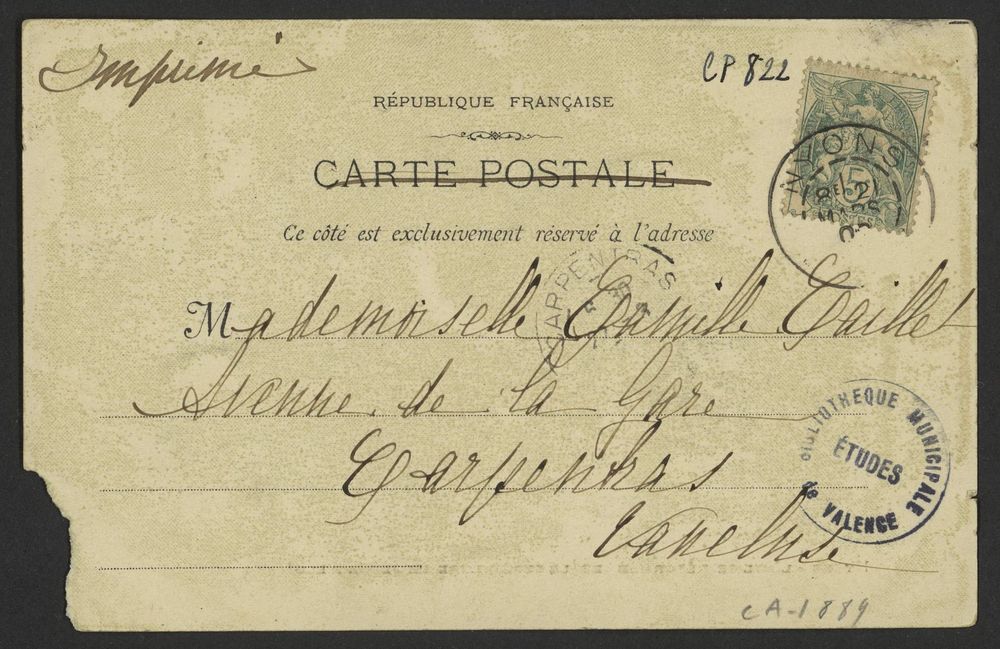 Imprimé
CP 822
RÉPUBLIQUE FRANÇAISE
CARTE POSTALE
Ce côté est exclusivement réservé à l'adresse
NYONS
8E 21
MARS
5
CARPENTRAS
Mademoiselle Camille Taillet
Avenue de la Gare
Carpentras
Vaucluse
BIBLIOTHEQUE MUNICIPALE
ÉTUDES
de VALENCE
CA-1889